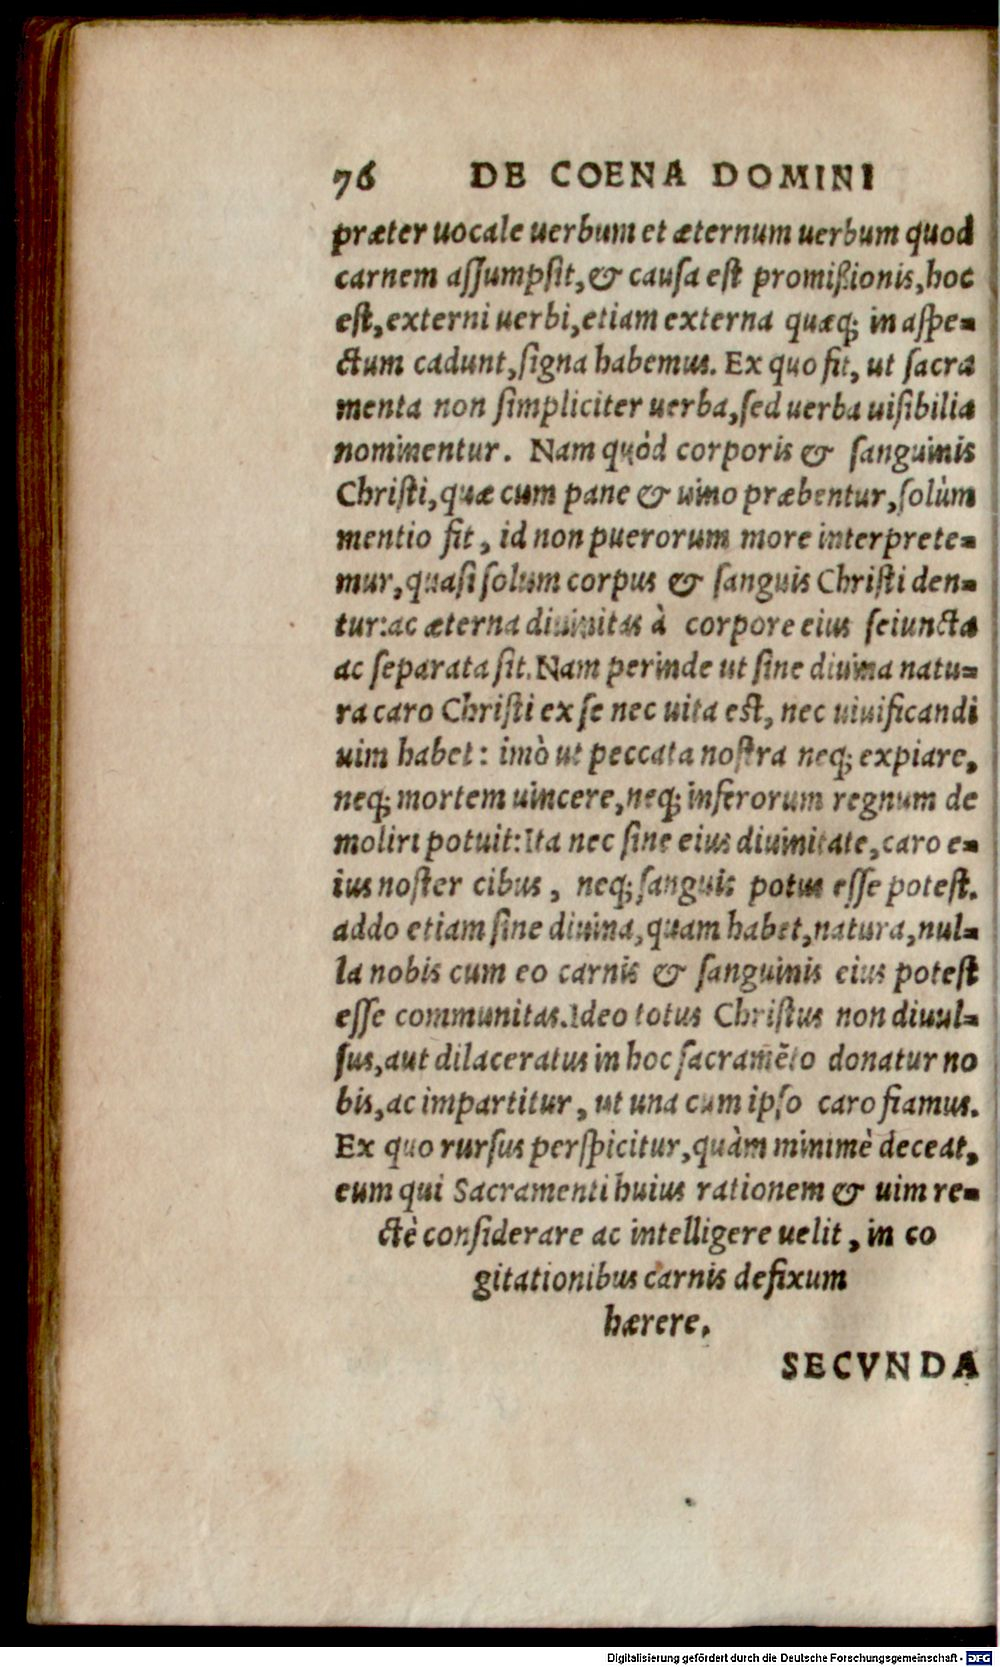 76 DE COENA DOMINI
præter uocale uerbum et æternum uerbum quod
carnem aſſumpſit, & cauſa eſt promiſsionis, hoc
eſt, externi uerbi, etiam externa quæq; in aſpe=
ctum cadunt, ſigna habemus. Ex quo fit, ut ſacra
menta non ſimpliciter uerba, ſed uerba uiſibilia
nominentur. Nam quòd corporis & ſanguinis
Chriſti, quæ cum pane & uino præbentur, ſolùm
mentio fit, id non puerorum more interprete=
mur, quaſi ſolum corpus & ſanguis Chriſti den=
tur: ac æterna diuinitas à corpore eius ſeiuncta
ac ſeparata ſit. Nam perinde ut ſine diuina natu=
ra caro Chriſti ex ſe nec uita eſt, nec uiuificandi
uim habet: imò ut peccata noſtra neq; expiare,
neq; mortem uincere, neq; inferorum regnum de
moliri potuit: Ita nec ſine eius diuinitate, caro e=
ius noſter cibus, neq; ſanguis potus eſſe poteſt.
addo etiam ſine diuina, quam habet, natura, nul=
la nobis cum eo carnis & ſanguinis eius poteſt
eſſe communitas. Ideo totus Chriſtus non diuul=
ſus, aut dilaceratus in hoc ſacramẽto donatur no
bis, ac impartitur, ut una cum ipſo caro fiamus.
Ex quo rurſus perſpicitur, quàm minimè deceat,
eum qui Sacramenti huius rationem & uim re=
ctè conſiderare ac intelligere uelit, in co
gitationibus carnis defixum
hærere.
SECVNDA
Digitalisierung gefördert durch die Deutsche Forschungsgemeinschaft - DFG